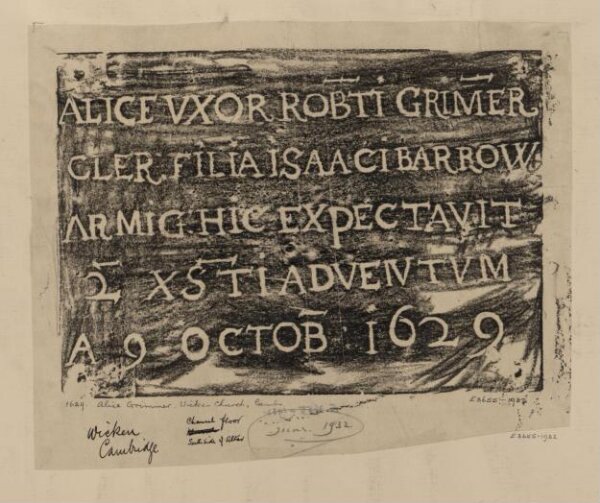 ALICE VXOR ROB̅TI GRIM̅ER
CLER: FILIA ISAACI BARROW
ARMIG HIC EXPECTAVIT
XS̅TI ADVENTVM
A 9 OCTOB̅ 1629
1629. Alice Grimmer. Wicken Church, Cambs
E3655-1932
Wicken
Cambridge
Chancel floor
South side of Altar
1932
E3655-1932